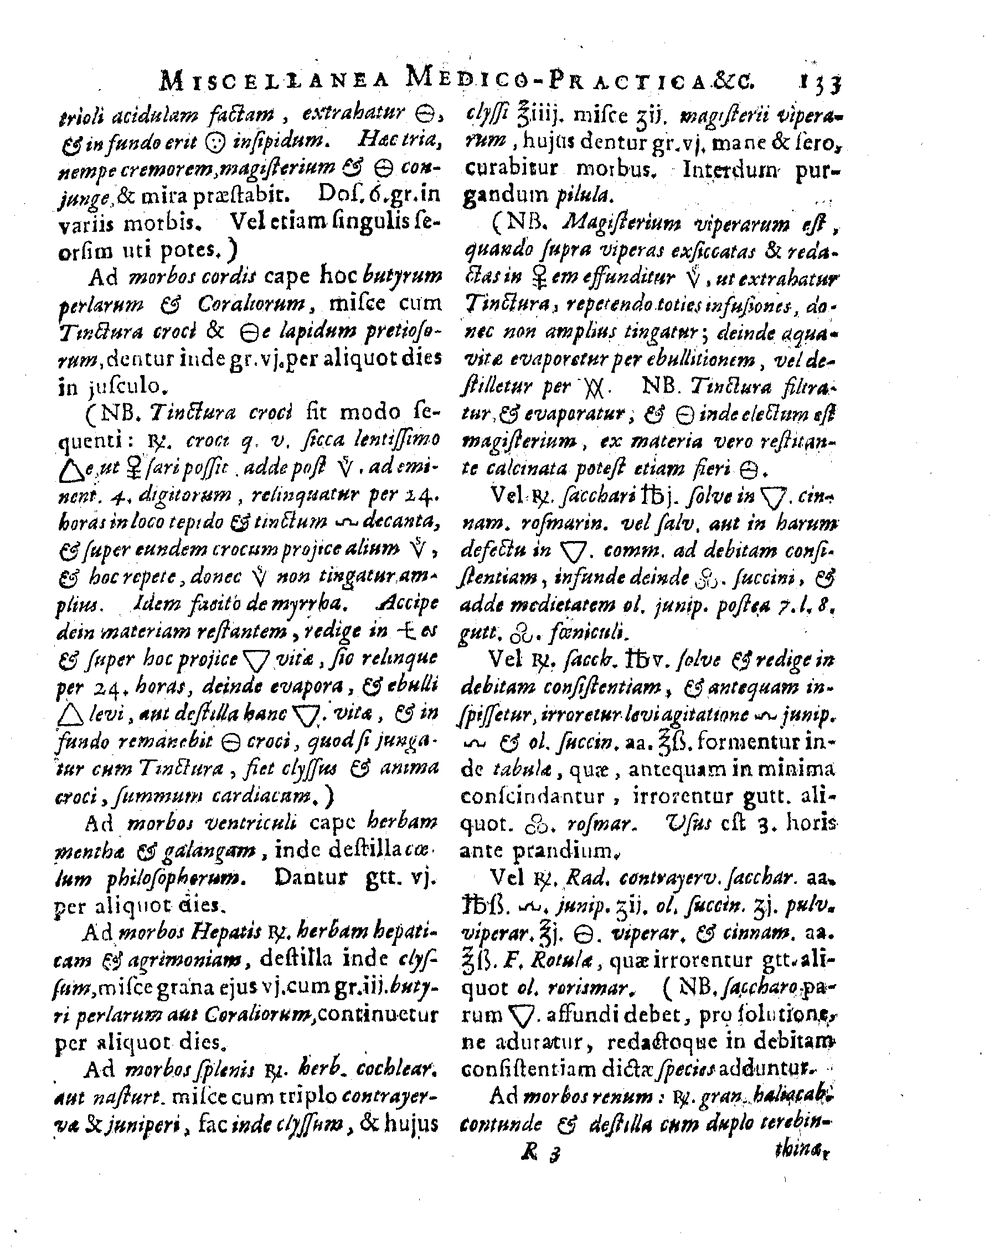 MISCELLANEA MEDICO-PRACTICA &C. 133
trioli acidulam factam, extrahatur 🜔,
& in fundo erit ☉ insipidum. Hæc tria,
nempe cremorem, magisterium & 🜔 con-
junge, & mira præstabit. Dos. 6. gr. in
variis morbis. Vel etiam singulis se-
orsim uti potes.)
Ad morbos cordis cape hoc butyrum
perlarum & Coraliorum, misce cum
Tinctura croci & 🜔e lapidum pretioso-
rum, dentur inde gr. vj. per aliquot dies
in jusculo.
(NB. Tinctura croci fit modo se-
quenti: ℞. croci q. v. sicca lentissimo
🜂e, ut ♀sari possit, adde post V̊. ad emi-
nent. 4. digitorum, relinquatur per 24.
horas in loco tepido & tinctum decanta,
& super eundem crocum projice alium V̊,
& hoc repete, donec V̊ non tingatur am-
plius. Idem facito de myrrha. Accipe
dein materiam restantem, redige in es
& super hoc projice 🜄 vitæ, sio relinque
per 24. horas, deinde evapora, & ebulli
🜂 levi, aut destilla hanc 🜄. vitæ, & in
fundo remanebit 🜔 croci, quod si junga-
tur cum Tinctura, fiet clyssus & anima
croci, summum cardiacum.)
Ad morbos ventriculi cape herbam
menthæ & galangam, inde destilla cœ-
lum philosophorum. Dantur gtt. vj.
per aliquot dies.
Ad morbos Hepatis ℞. herbam hepati-
cam & agrimoniam, destilla inde clys-
sum, misce grana ejus vj. cum gr. iij. buty-
ri perlarum aut Coraliorum, continuetur
per aliquot dies.
Ad morbos splenis ℞. herb. cochlear.
aut nasturt. misce cum triplo contrayer-
væ & juniperi, fac inde clyssum, & hujus
clyssi ℥iiij. misce ʒij. magisterii vipera-
rum, hujus dentur gr. vj. mane & sero,
curabitur morbus. Interdum pur-
gandum pilula.
(NB. Magisterium viperarum est,
quando supra viperas exsiccatas & reda-
ctas in ♀em effunditur V̊, ut extrahatur
Tinctura, repetendo toties infusiones, do-
nec non amplius tingatur; deinde aqua-
vitæ evaporetur per ebullitionem, vel de-
stilletur per XX. NB. Tinctura filtra-
tur, & evaporatur, & 🜔 inde electum est
magisterium, ex materia vero restitan-
te calcinata potest etiam fieri 🜔.
Vel ℞. sacchari ℔j. solve in 🜄. cin-
nam. rosmarin. vel salv. aut in harum
defectu in 🜄. comm. ad debitam consi-
stentiam, infunde deinde 🝆. succini, &
adde medietatem ol. junip. postea 7. l. 8.
gutt. 🝆. fœniculi.
Vel ℞. sacch. ℔v. solve & redige in
debitam consistentiam, & antequam in-
spissetur, irroretur levi agitatione junip.
& ol. succin. aa. ℥ß. formentur in-
de tabulæ, quæ, antequam in minima
conscindantur, irrorentur gutt. ali-
quot. 🝆. rosmar. Usus est 3. horis
ante prandium.
Vel ℞. Rad. contrayerv. sacchar. aa.
℔ß. junip. ʒij. ol. succin. ʒj. pulv.
viperar. ℥j. 🜔. viperar. & cinnam. aa.
℥ß. F. Rotulæ, quæ irrorentur gtt. ali-
quot ol. rorismar. (NB. saccharo pa-
rum 🜄. affundi debet, pro solutione,
ne aduratur, redactoque in debitam
consistentiam dictæ species adduntur.
Ad morbos renum: ℞. gran. halicacabi
contunde & destilla cum duplo terebin-
R 3 thinæ,